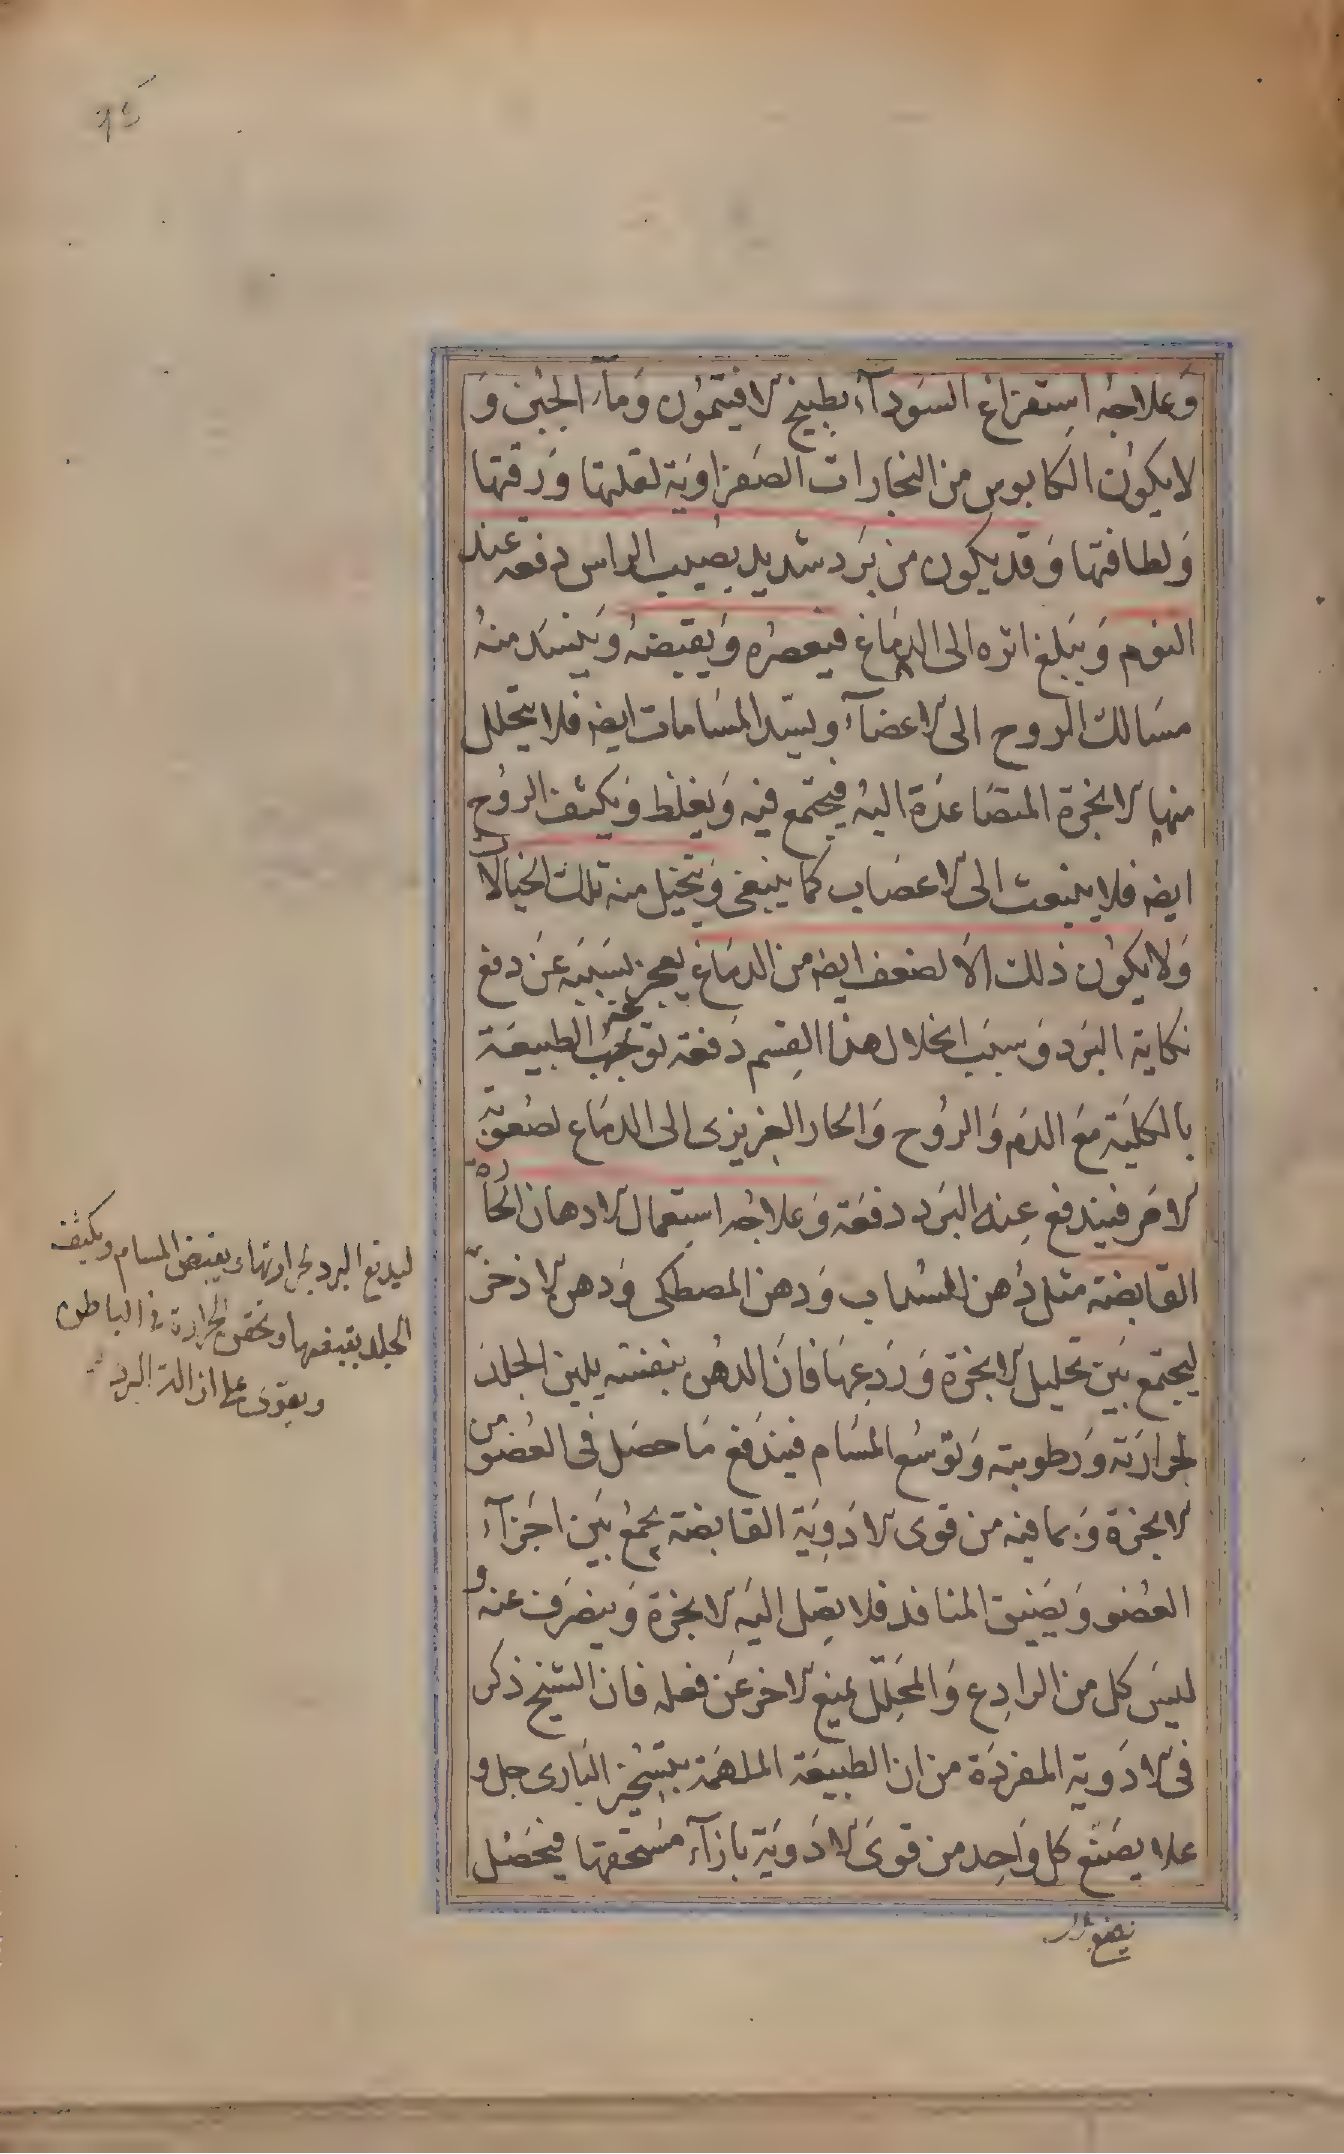 وَعلاجهُ استفراغ السَودآء بطبيخ الافتيمُون وَمآء الجبُن وَ
لايكوُن الكابوس من البخارات الصَفراويَة لقلتها وَرقتها
وَلطافتها وَقد يكون من بَرد شديد يصُيب الراس دفعه عند
النوم وَيَبلغ اثره الى الدمَاغ فيعصرُه وَيقبضهُ وَينسَد منهُ
مسَالك الروح الى الاعضآء ويسَد المسَامات ايضا فلا يتحلل
منها الابخرة المتصَاعدَة اليه فيجتمع فيه وَيغلظ وَيكثف الروُح
ايضا فلا ينبعث الى الاعصَاب كما ينبغى وَيتخيل منه تلك الخيالات
وَلا يكوُن ذلك الّا لضعف ايضا من الدمَاغ يعجز بسَببَه عَن دفع
نكاية البَرد وَسبَب انحلال هذا القِسم دَفعة توَجه الطبيعَة
بالكليَة مَع الدَم وَالروُح وَالحار الغريزى الى الدمَاغ لصُعوبَة
الامَر فيندفع عنه البَرد دفعَة وَعلاجُه استعمال الادهان الحَارة
القابضة مثل دُهن السُداب وَدهن المصطكى وَدهن الاذخر
ليجتمع بَين تحليل الابخرَة وَرَدعهَا فانَ الدهُن بنفسه يلين الجلدَ
لحرارَته وَرطوبته وَتوسُع المسَام فيندَفع مَا حصَل فى العُضو من
الابخرة وَبما فيه من قوى الادَويَة القابضة يجمَعُ بَين اجَزآء
العُضو وَيضَيق المنافذ فلا يصِل اليَه الابخرَة وَينصَرف عنه و
ليسَ كل من الرادِع وَالمحَلِل يمنع الاخر عَن فعله فان الشيخ ذكر
فى الادَوية المفردَة من ان الطبيعَة الملهمَة بتسَخير البَارى جل و
علا يصَنَع كل وَاحِد من قوىَ الادَويَة بازآء مسَتحقها فيحَصُل
ليدفع البرد بحرارتها ويقبض المسام ويكثف
الجلد بقبضها وتحقن الحرارة فى الباطن
ويقوى على ازالة البرد